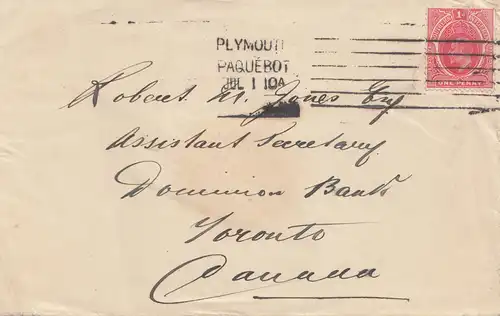 PLYMOUTH
PAQUEBOT
JUL 1 10A
1D
ONE PENNY
Robert M. Jones Esq
Assistant Secretary
Dominion Bank
Toronto
Canada